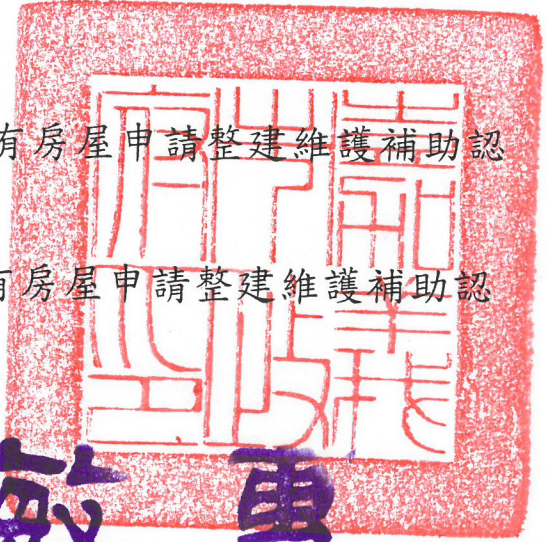 有房屋申請整建維護補助認
有房屋申請整建維護補助認
嘉義
市政
府印
敏